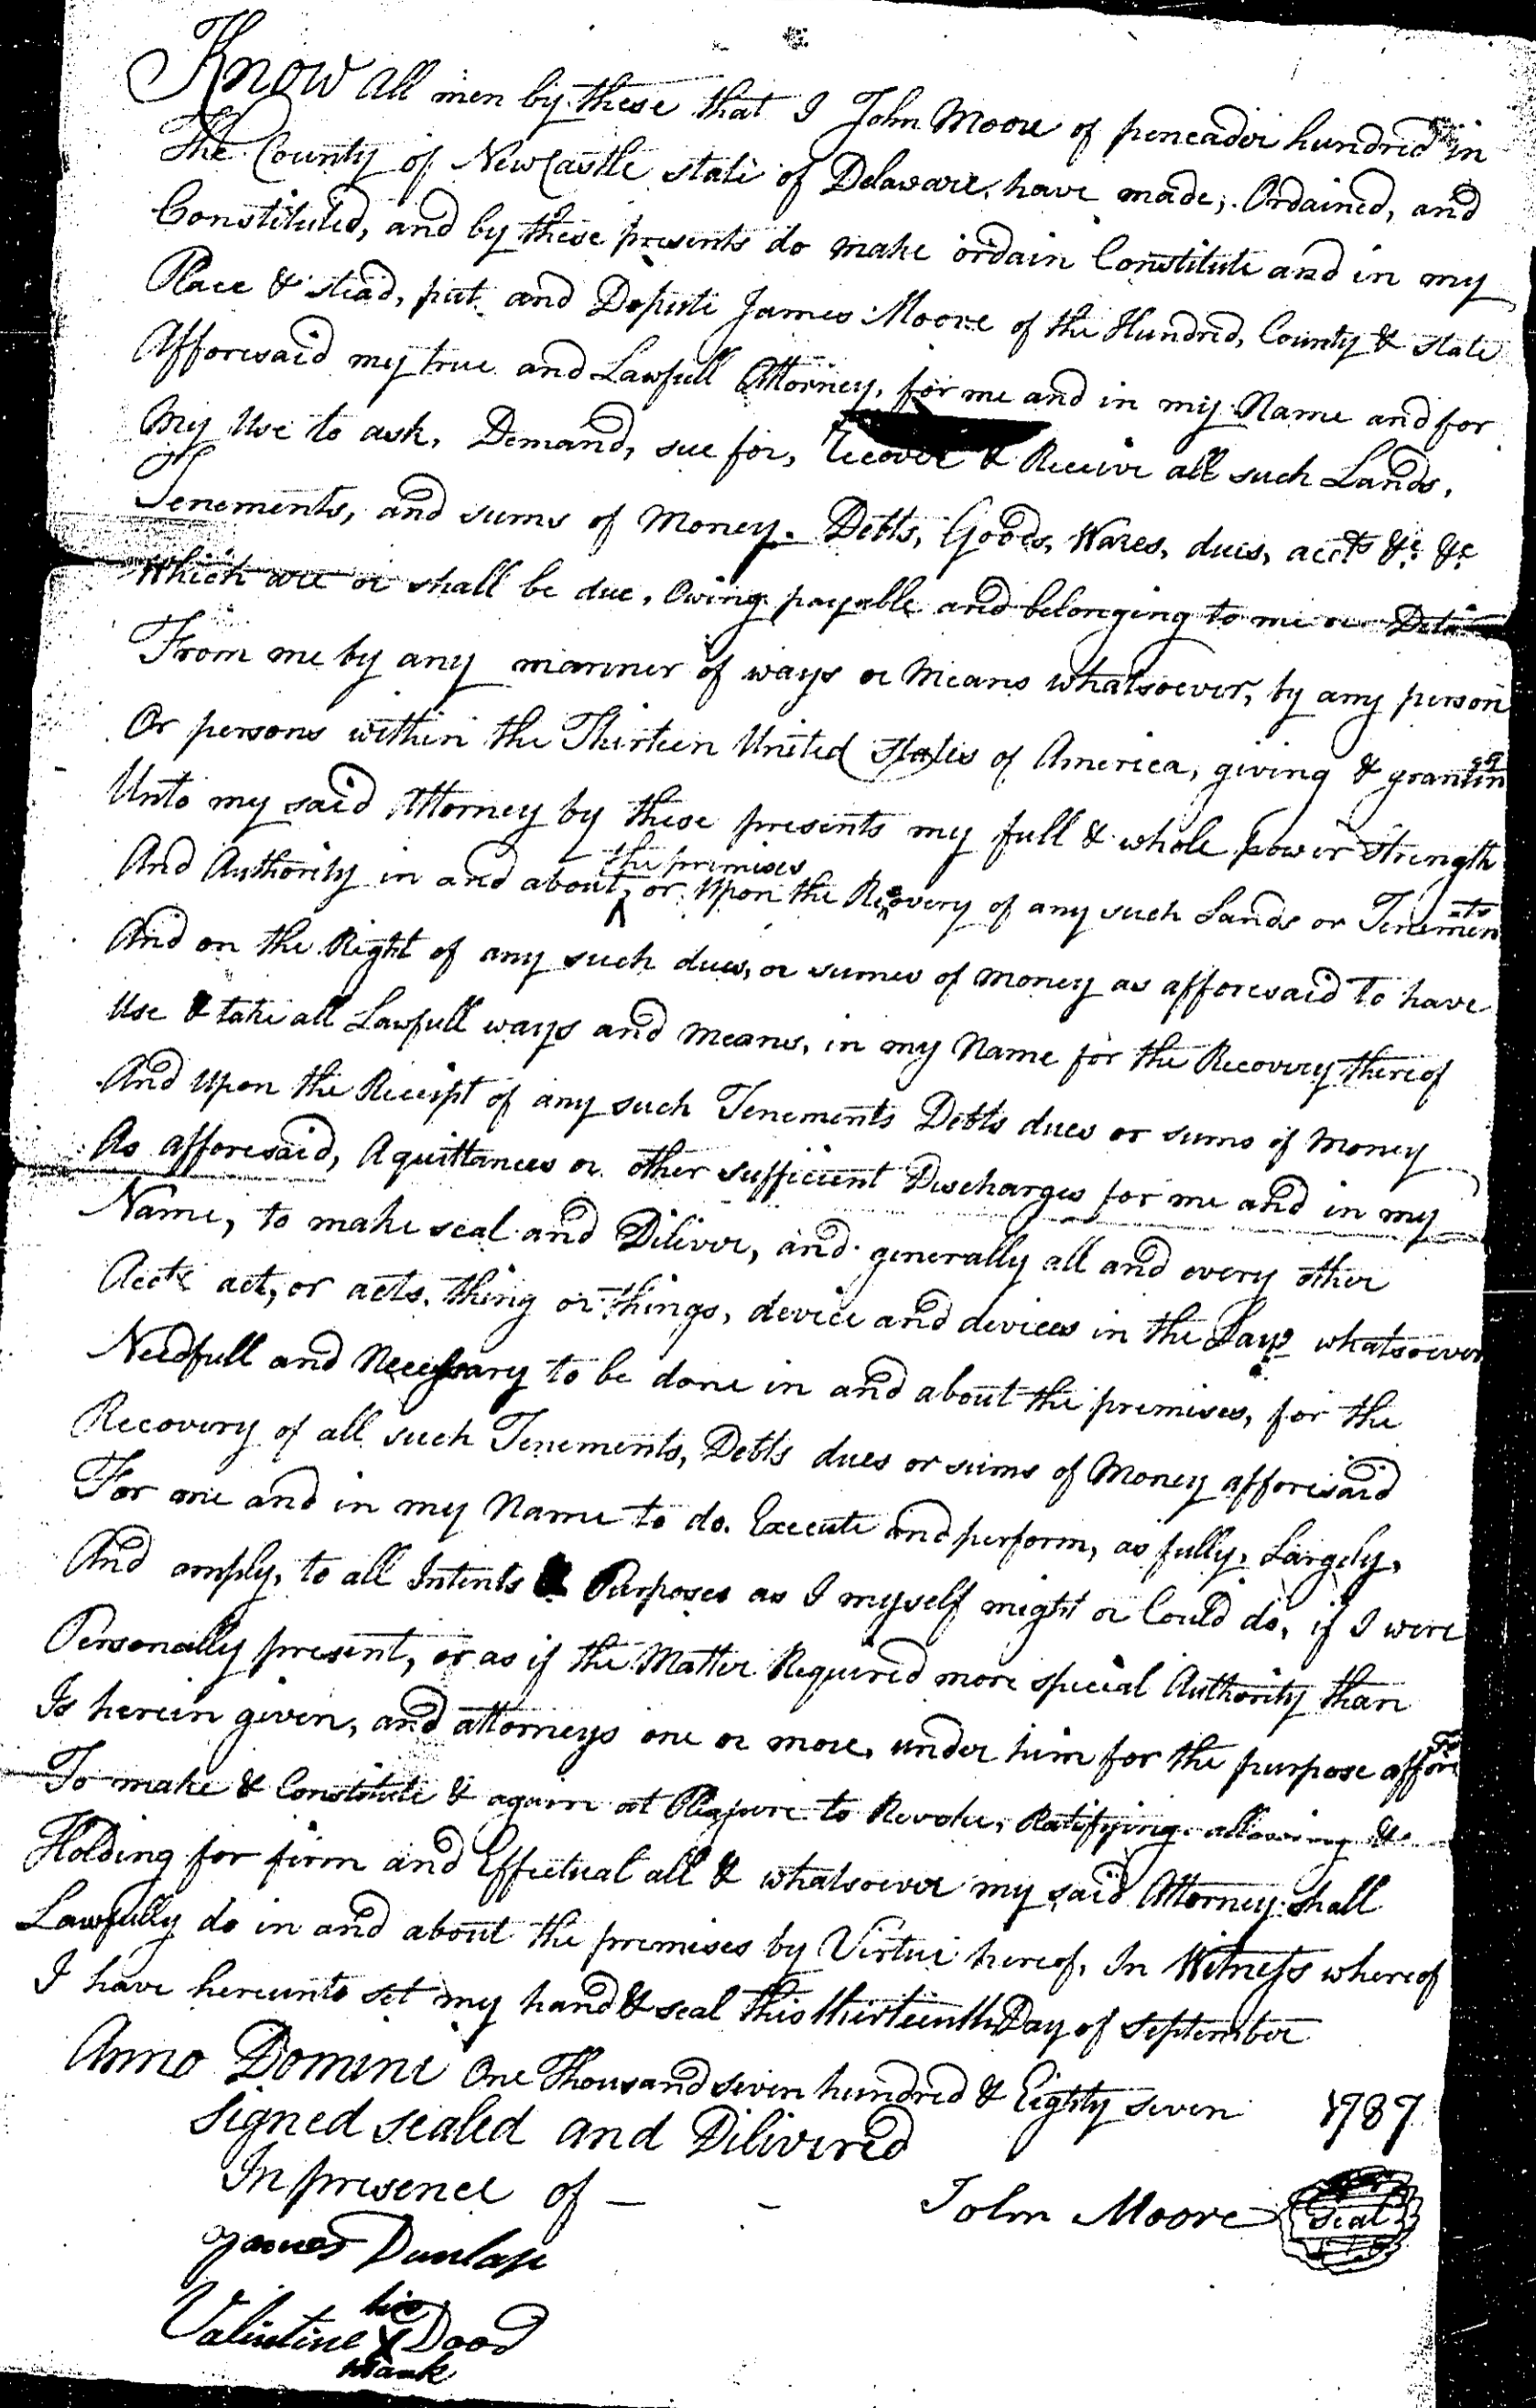 Know all men by these that I John Moore of pencader hundred in
The County of NewCastle state of Delaware, have made, Ordained, and
Constituted, and by these presents do make ordain Constitute and in my
Place & stead, put and Depute James Moore of the Hundred, County & state
Afforesaid my true and Lawfull Attorney, for me and in my Name and for
My Use to ask, Demand, sue for, Recover & Receive all such Lands,
Tenements, and sums of Money. Debts, Goods, Wares, dues, accts &c &c
Which are or shall be due, Owing payable and belonging to me or
From me by any manner of ways or Means whatsoever, by any person
Or persons within the Thirteen United States of America, giving & granting
Unto my said Attorney by these presents my full & whole power strength
the premises
And Authority in and about, or Upon the Recovery of any such Lands or Tenements
And on the Right of any such dues, or sumes of money as afforesaid to have
Use & take all Lawfull ways and Means, in my Name for the Recovery thereof
And Upon the Receipt of any such Tenements Debts dues or sums of Money
As afforesaid, Aquittances or other sufficient Discharges for me and in my
Name, to make seal and Diliver, and generally all and every other
act, or acts, thing or things, device and devices in the Law whatsoever
Needfull and Necessary to be done in and about the premises, for the
Recovery of all such Tenements, Debts dues or sums of Money afforesaid
For me and in my Name to do. Execute and perform, as fully, Largely,
And amply, to all Intents & Purposes as I myself might or Could do, if I were
Personally present, or as if the Matter Required more special Authority than
Is herein given, and attorneys one or more, under him for the purpose affore
To make & Constitute & again at Pleasure to Revoke, Ratifying allowing &
Holding for firm and Effectual all & whatsoever my said Attorney shall
Lawfully do in and about the premises by Virtue hereof, In Witness whereof
I have hereunto set my hand & seal this thirteenth Day of September
Anno Domini One Thousand seven hundred & Eighty seven 1787
Signed sealed and Dilivered
In presence of —
John Moore Seal
James Dunlap
his
Valintine X Dood
mark